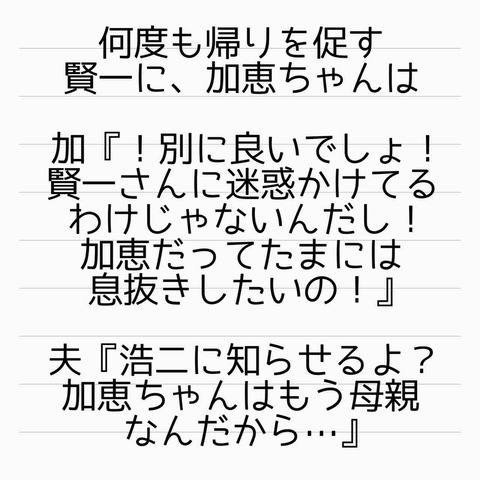 何度も帰りを促す
賢一に、加恵ちゃんは
加『！別に良いでしょ！
賢一さんに迷惑かけてる
わけじゃないんだし！
加恵だってたまには
息抜きしたいの！』
夫『浩二に知らせるよ？
加恵ちゃんはもう母親
なんだから…』